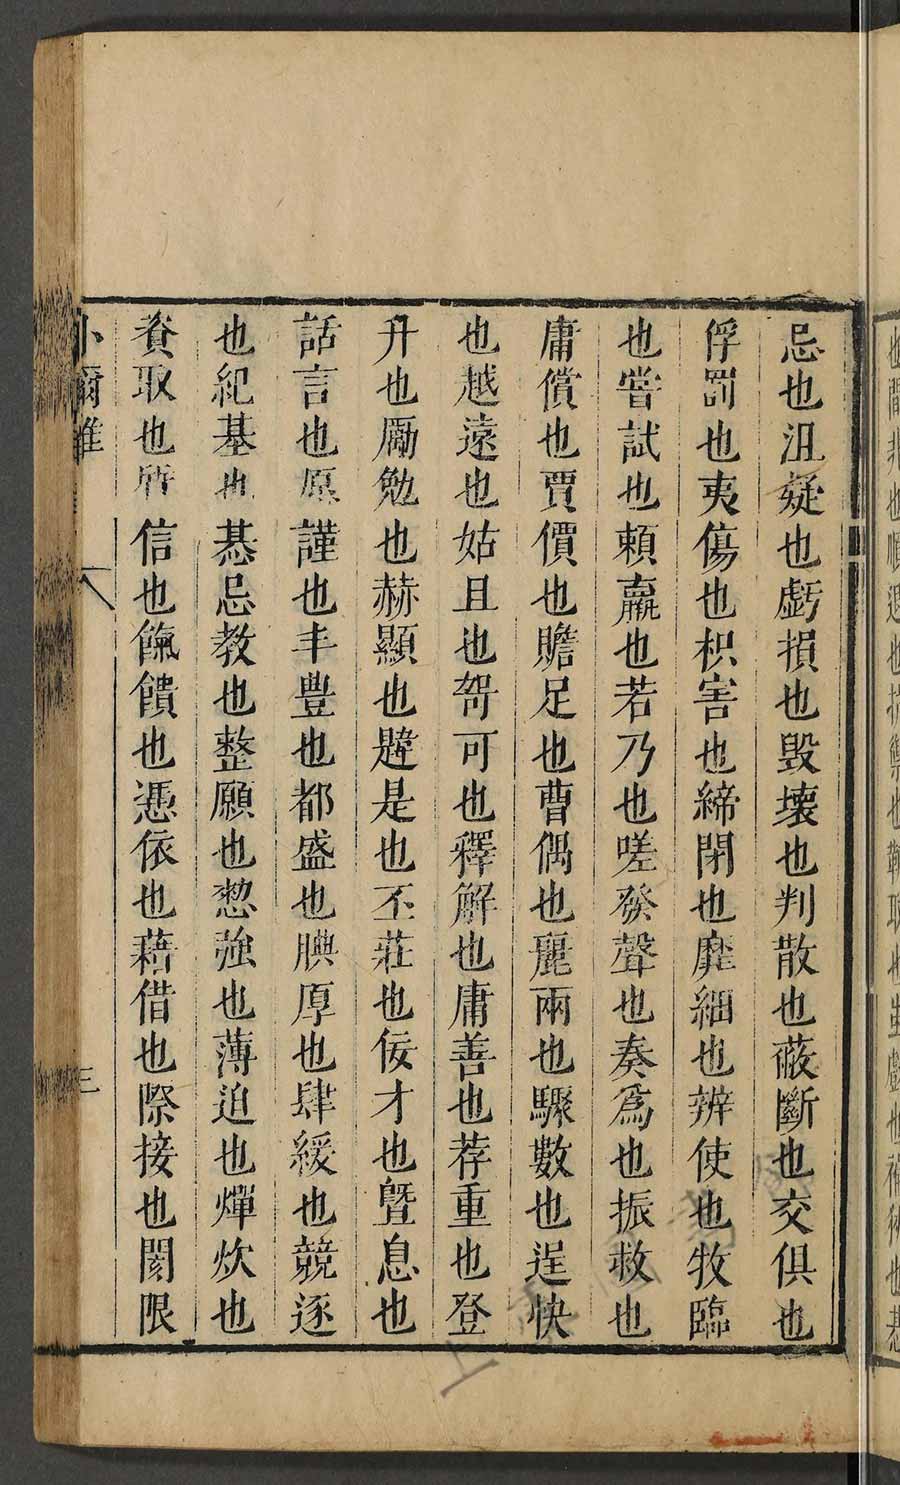 忌也沮疑也虧損也毀壞也判散也蔽斷也交俱也
俘罰也夷傷也枳害也締閉也靡細也辨使也牧臨
也嘗試也頼贏也若乃也嗟發聲也奏為也振救也
庸償也賈價也贍足也曹偶也麗兩也驟數也逞快
也越遠也姑且也哿可也釋解也庸善也荐重也登
升也勵勉也赫顯也韙是也丕莊也佞才也曁息也
話言也愿謹也丰豐也都盛也腆厚也肆緩也競逐
也紀基也惎忌教也整願也憗強也薄迫也燀炊也
賚取也屑信也餼饋也憑依也藉借也際接也閡限
小爾雅 三